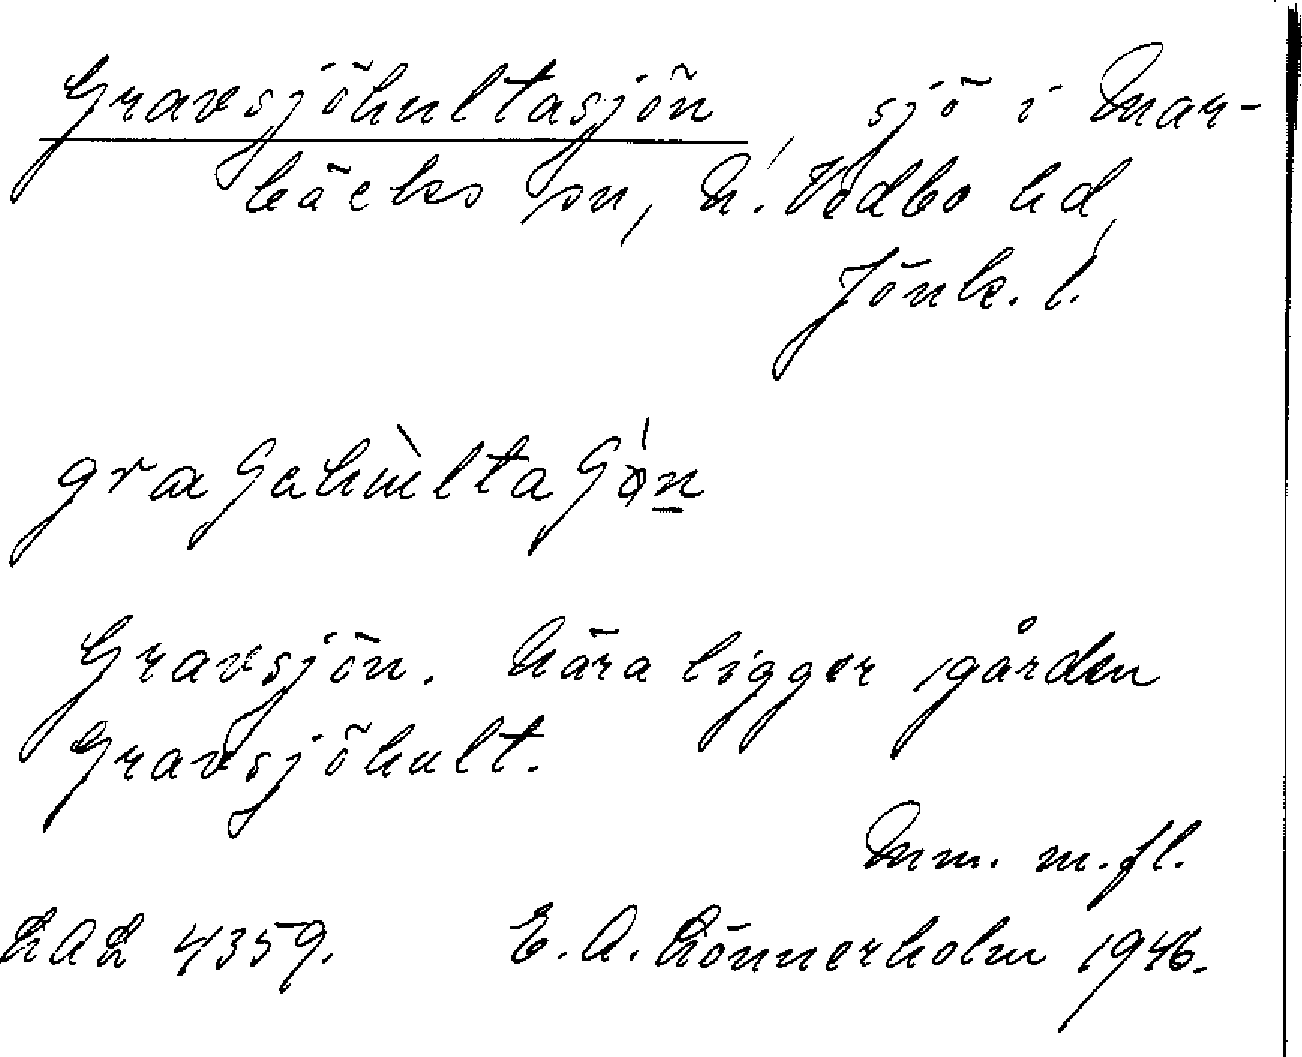 Gravsjöhultasjön, sjö i Mar-
bäcks sn, N. Vedbo hd,
Jönk. l.
Gravsjön. Nära ligger gården
Gravsjöhult.
Mm. m.fl.
LAL 4359. E. A. Lönnerholm 1946.